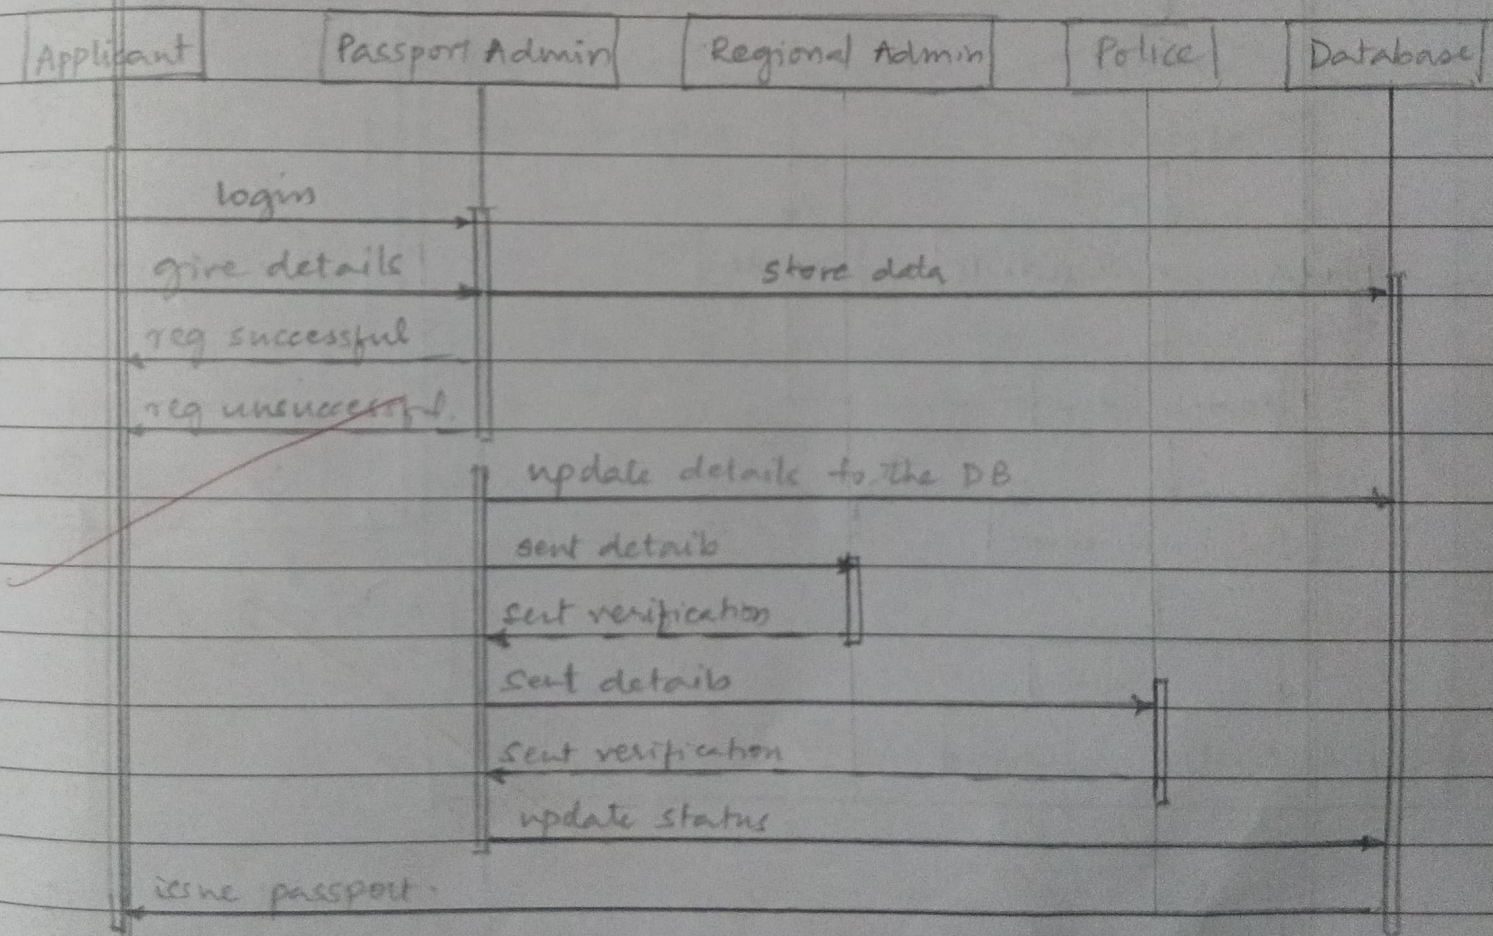 Applicant
Passport Admin
Regional Admin
Police
Database
login
give details
store data
reg successful
reg unsuccessful.
update details to the DB
sent details
sent verification
sent details
sent verification
update status
issue passport.